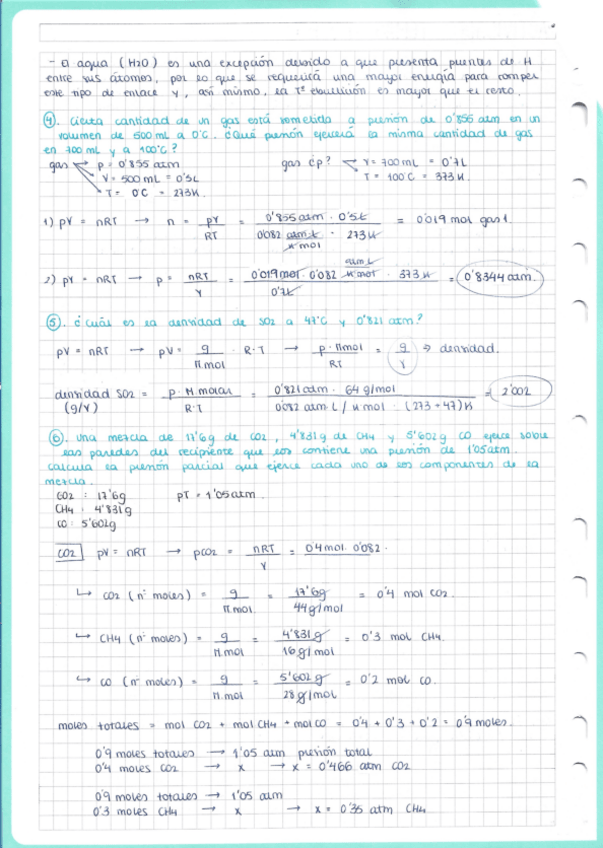 - El agua (H2O) es una excepción devido a que presenta puentes de H
entre sus átomos, por lo que se requerirá una mayor energía para romper
este tipo de enlace y, así mismo, la Tª ebullición es mayor que el resto.
4). Cierta cantidad de un gas está sometida a presión de 0'855 atm en un
volumen de 500 mL a 0ºC. ¿Qué presión ejercerá la misma cantidad de gas
en 700 mL y a 100ºC?
gas → p = 0'855 atm
V = 500 mL = 0'5L
T = 0ºC = 273K
gas ¿p? V = 700 mL = 0'7L
T = 100ºC = 373K
1) pV = nRT → n = pV / RT = 0'855 atm · 0'5L / 0'082 atm·L/K·mol · 273K = 0'019 mol gas 1.
2) pV = nRT → p = nRT / V = 0'019 mol · 0'082 atm·L/K·mol · 373K / 0'7L = 0'8344 atm.
5). ¿Cuál es la densidad de SO2 a 47ºC y 0'821 atm?
pV = nRT → pV = g / M.mol · R·T → p · M.mol / RT = g / V → densidad.
densidad SO2 (g/V) = p · M molar / R·T = 0'821 atm · 64 g/mol / 0'082 atm·L / K·mol · (273+47)K = 2'002
6). Una mezcla de 17'6g de CO2, 4'831g de CH4 y 5'602g CO ejerce sobre
las paredes del recipiente que los contiene una presión de 1'05 atm.
Calcula la presión parcial que ejerce cada uno de los componentes de la
mezcla.
CO2 : 17'6g PT = 1'05 atm.
CH4 : 4'831g
CO : 5'602g
CO2 pV = nRT → pCO2 = nRT / V = 0'4 mol · 0'082 ·
↳ CO2 (nº moles) = g / M.mol = 17'6g / 44g/mol = 0'4 mol CO2.
↳ CH4 (nº moles) = g / M.mol = 4'831g / 16g/mol = 0'3 mol CH4.
↳ CO (nº moles) = g / M.mol = 5'602g / 28g/mol = 0'2 mol CO.
moles totales = mol CO2 + mol CH4 + mol CO = 0'4 + 0'3 + 0'2 = 0'9 moles.
0'9 moles totales → 1'05 atm presión total
0'4 moles CO2 → x → x = 0'466 atm CO2
0'9 moles totales → 1'05 atm
0'3 moles CH4 → x → x = 0'35 atm CH4